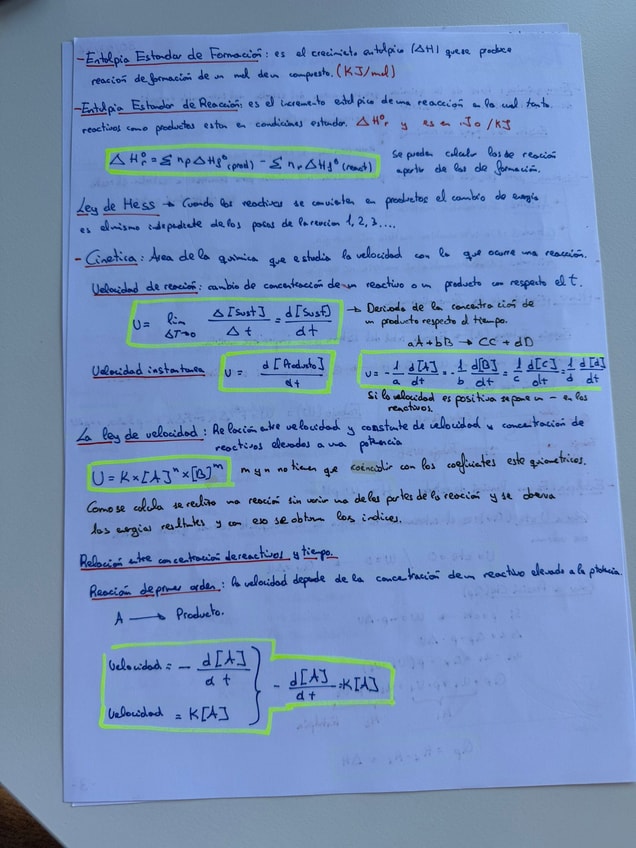 - Entalpia Estandar de Formación: es el crecimiento entalpico (ΔH) que se produce
reación de formación de un mol de un compuesto. (KJ/mol)
- Entalpia Estandar de Reacción: es el incremento entalpico de una reacción en la cual tanto
reactivos como productos estan en condiciones estandar. ΔH°r y es en J o /KJ
ΔH°r = Σ np ΔHf°(prod) - Σ nr ΔHf°(react)
Se pueden calcular las de reación
apartir de las de formación.
Ley de Hess → Cuando los reactivos se convierten en productos el cambio de energia
es el mismo independiente de los pasos de la reacion 1, 2, 3, ...
- Cinetica: Area de la quimica que estudia la velocidad con la que ocurre una reacción.
Velocidad de reación: cambio de concentración de un reactivo o un producto con respecto el t.
U = lim ΔT→0 Δ[Sust]/Δt = d[Sust]/dt
→ Derivada de la concentración de
un producto respecto el tiempo.
aA + bB → CC + dD
Velocidad instantanea U = d[Producto]/dt
U = -1/a d[A]/dt = -1/b d[B]/dt = 1/c d[C]/dt = 1/d d[d]/dt
Si la velocidad es positiva se pone un - en los
reactivos.
La ley de velocidad: Relación entre velocidad y constante de velocidad y concentración de
reactivos elevados a una potencia
U = K × [A]ⁿ × [B]ᵐ m y n no tienen que coincidir con los coeficientes estequiometricos.
Como se calcula se realiza una reación sin variar una de las partes de la reación y se observa
las energias resultantes y con eso se obtienen los indices.
Relación entre concentración de reactivos y tiempo.
Reación de primer orden: la velocidad depende de la concentración de un reactivo elevado a la potencia.
A → Producto.
Velocidad = - d[A]/dt
Velocidad = K[A]
} - d[A]/dt = K[A]